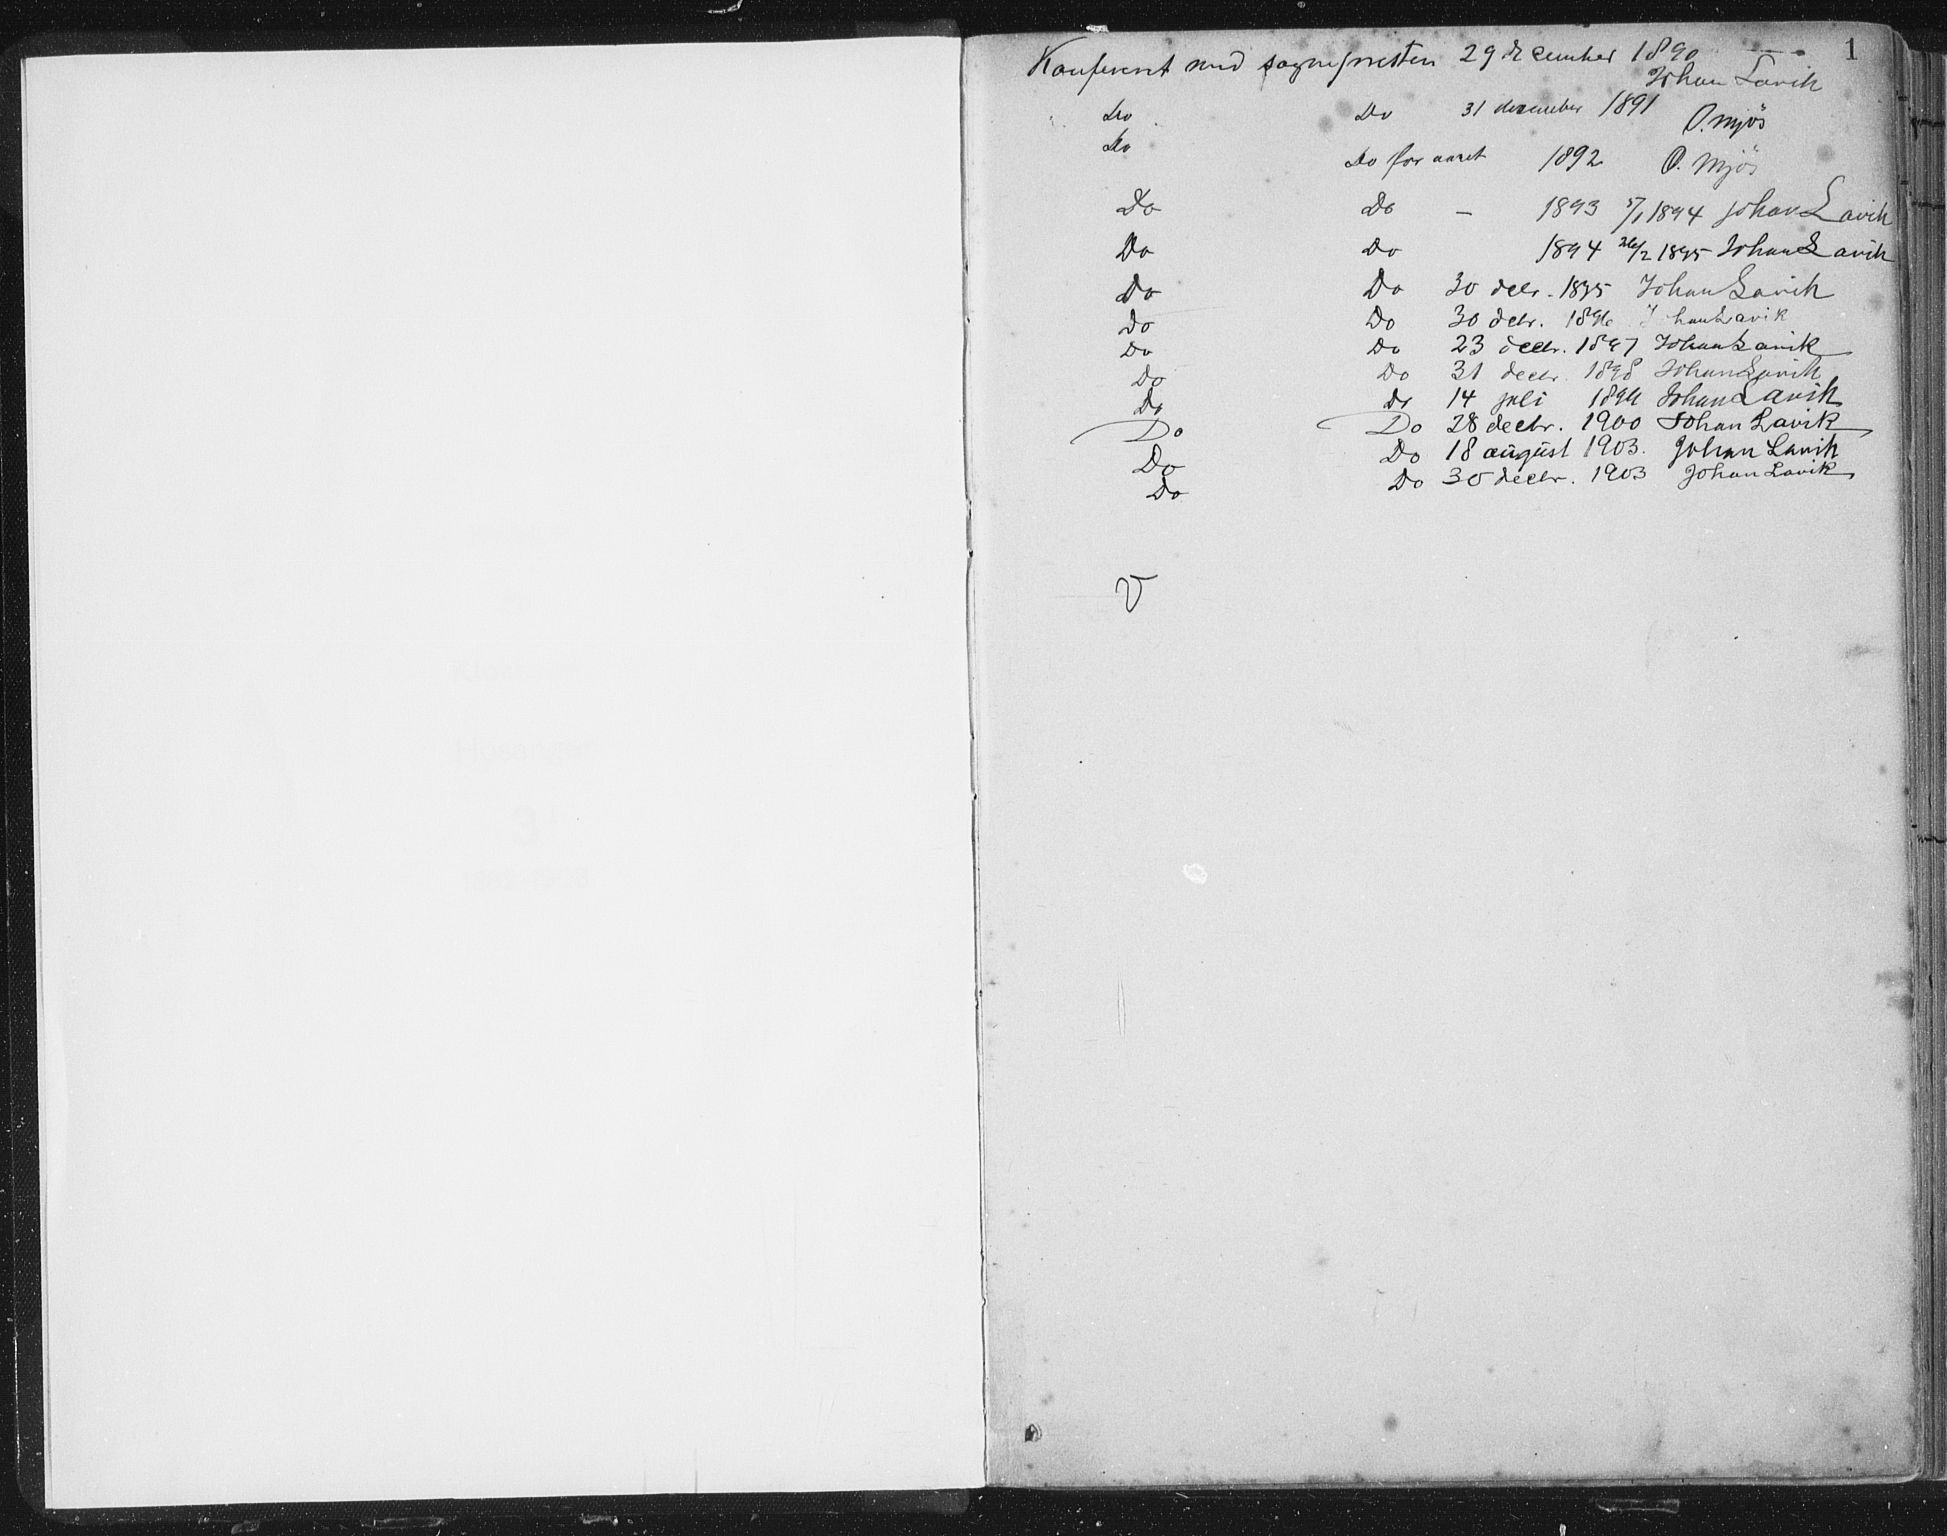 1
Konferert med sognepresten 29 december 1890
Johan Lavik
Do Do 31 december 1891 O. Mjös
Do Do for aaret 1892 O. Mjös
Do Do — 1893 1894 Johan Lavik
Do Do 1894 26/2 1895 Johan Lavik
Do Do 30 decbr. 1895 Johan Lavik
Do Do 30 decbr. 1896 Johan Lavik
Do Do 23 decbr. 1897 Johan Lavik
Do Do 31 decbr. 1898 Johan Lavik
Do Do 14 juli 1899 Johan Lavik
Do Do 28 decbr. 1900 Johan Lavik
Do Do 18 august 1903. Johan Lavik
Do Do 30 decbr. 1903 Johan Lavik
V